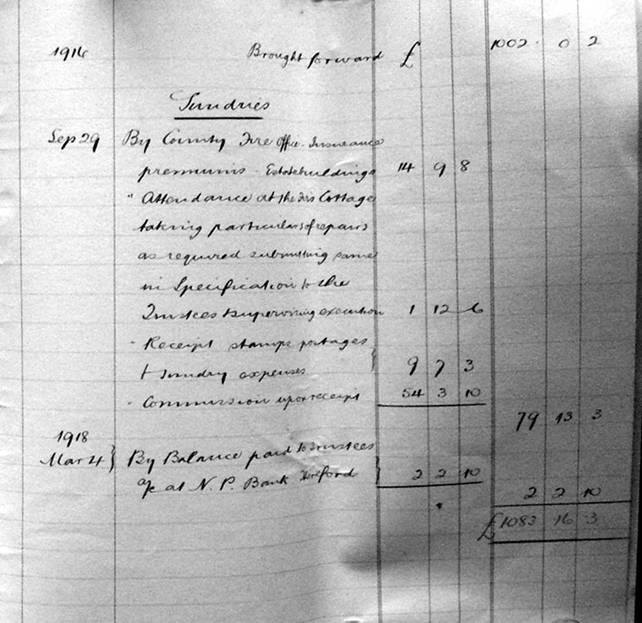 1916 Brought forward £ 1002 . 0 2
Sundries
Sep 29 By County Fire Office Insurance
premiums - Estate buildings 14 9 8
" Attendance at the Cottage
taking particulars of repairs
as required submitting same
in Specification to the
Trustees & supervising execution 1 12 6
" Receipt stamps postages
& Sunday expenses } 9 7 3
" Commission upon receipt 54 3 10
79 13 3
1918
Mar 4 } By Balance paid to Trustees
a/c at N. P. Bank Hereford } 2 2 10
2 2 10
£1083 16 3